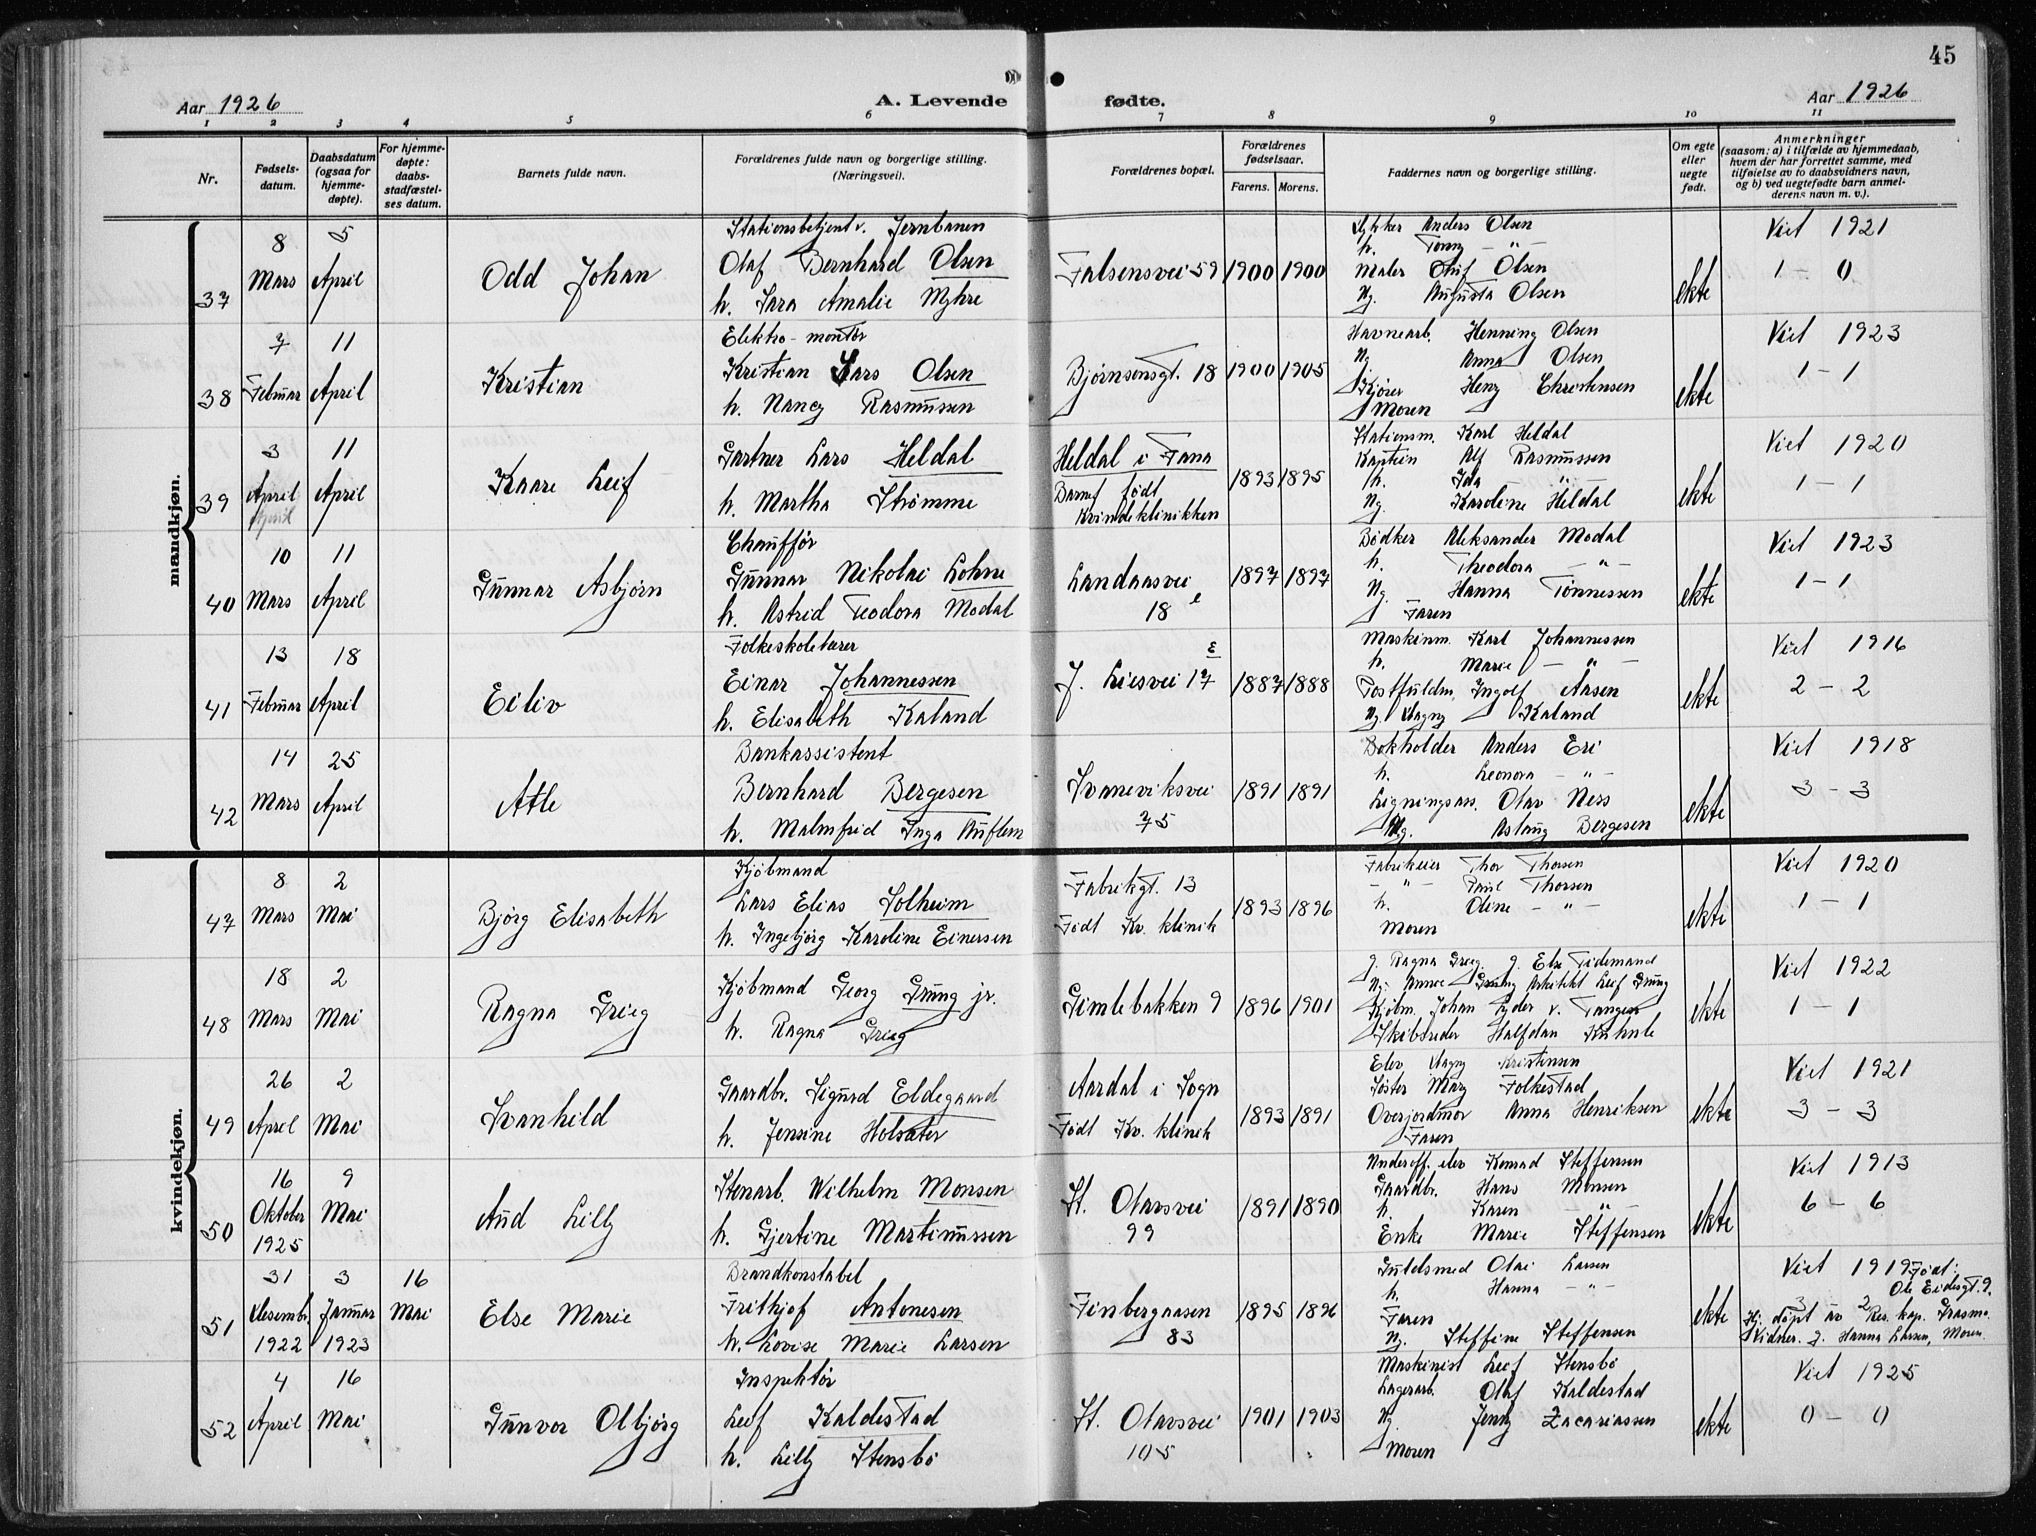 45
Aar 1926
A. Levende
fødte.
Aar 1926
1 2 3 4 5 6 7 8 9 10 11
Nr.
Fødsels-
datum.
Daabsdatum
(ogsaa for
hjemme-
døpte).
For hjemme-
døpte:
daabs-
stadfæstel-
ses datum.
Barnets fulde navn.
Forældrenes fulde navn og borgerlige stilling.
(Næringsvei).
Forældrenes bopæl.
Forældrenes
fødselsaar.
Farens. Morens.
Faddernes navn og borgerlige stilling.
Om egte
eller
uegte
født.
Anmerkninger
(saasom: a) i tilfælde av hjemmedaab,
hvem der har forrettet samme, med
tilføielse av to daabsvidners navn,
og b) ved uegtefødte barn anmel-
derens navn m. v.).
mandkjøn.
37
8
Mars
5
April
Odd Johan
Stationsbetjent v. Jernbanen
Olaf Bernhard Olsen
h. Sara Amalie Myhre
Falsensvei 59
1900 1900
Anders Olsen
h. Tonny — " —
Maler Olsen
Ug. Augusta Olsen
ekte
Viet 1921
1 — 0
38
7
Februar
11
April
Kristian
Elektro-montør
Kristian Lars Olsen
h. Nancy Rasmussen
Bjørnsonsgt. 18
1900 1905
Havnearb. Henning Olsen
Ug. Anna Olsen
Kjører Henry Christensen
Moren
ekte
Viet 1923
1 — 1
39
3
April
April
11
April
Kaare Leif
Gartner Lars Heldal
h. Martha Strømme
Heldal i Fana
Barnet født
Kvindeklinikken
1893 1895
Stationsm. Karl Heldal
Kaptein Alf Rasmussen
h. Ida — " —
Ug. Karoline Heldal
ekte
Viet 1920
1 — 1
40
10
Mars
11
April
Gunnar Asbjørn
Chauffør
Gunnar Nikolai Lohne
h. Astrid Teodora Modal
Landaasvei
18 e
1897 1897
Bødker Aleksander Modal
h. Theodora — " —
Ug. Hanna Tønnessen
Faren
ekte
Viet 1923
1 — 1
41
13
Februar
18
April
Eiliv
Folkeskolelærer
Einar Johannessen
h. Elisabeth Kaland
J. Liesvei 17 E
1887 1888
Maskinm. Karl Johannessen
h. Marie — " —
Postfuldm. Ingolf Aasen
Ug. Magny Kaland
ekte
Viet 1916
2 — 2
42
14
Mars
25
April
Atle
Bankassistent
Bernhard Bergesen
h. Malmfrid Inga Auflem
Svaneviksvei
75
1891 1891
Bokholder Anders Eri
h. Leonora — " —
Ligningsass. Olav Ness
Ug. Aslaug Bergesen
ekte
Viet 1918
3 — 3
kvindekjøn.
47
8
Mars
2
Mai
Bjørg Elisabeth
Kjøbmand
Lars Elias Solheim
h. Ingebjørg Karoline Einersen
Fabrikgt. 13
Født Kv. klinik
1893 1896
Fabrikeier Thor Thorsen
— " — Paul Thorsen
h. Oline — " —
Moren
ekte
Viet 1920
1 — 1
48
18
Mars
2
Mai
Ragna Grieg
Kjøbmand Georg Grung jr.
h. Ragna Grieg
Gimlebakken 9
1896 1901
g. Ragna Grieg. g. Else Tidemand
Ug. Annie Grung Arkitekt Leif Grung
Kjøbm. Johan Ryder v. Tangen
Skibsreder Halfdan Kuhnle
ekte
Viet 1922
1 — 1
49
26
April
2
Mai
Svanhild
Gaardbr. Sigurd Eldegaard
h. Jensine Holsæter
Aardal i Sogn
Født Kv. klinik
1893 1891
Elev Magny Kristensen
Søster Mary Folkestad
Overjordmor Anna Henriksen
Faren
ekte
Viet 1921
3 — 3
50
16
Oktober
1925
9
Mai
Aud Lilly
Stenarb. Wilhelm Monsen
h. Gjertine Martinussen
St. Olavsvei
99
1891 1890
Underoff. elev Konrad Steffensen
Gaardbr. Hans Monsen
h. Karen — " —
Enke Marie Steffensen
ekte
Viet 1913
6 — 6
51
31
Desembr.
1922
3
Januar
1923
16
Mai
Else Marie
Brandkonstabel
Frithjof Antonesen
h. Lovise Marie Larsen
Finbergaasen
83
1895 1896
Guldsmed Olai Larsen
h. Hanna — " —
Faren
Ug. Steffine Steffensen
ekte
Viet 1919 Født:
Ole Eidesgt. 9.
3 2
Hj. døpt av Res. kap. Grasmo.
Vidner. g. Hanna Larsen, Moren.
52
4
April
16
Mai
Gunvor Olbjørg
Inspektør
Leif Kaldestad
h. Lilly Stensbø
St. Olavsvei
105
1901 1903
Maskinist Leif Stensbø
Lagerarb. Olaf Kaldestad
Ug. Jenny Zacariassen
Moren
ekte
Viet 1925
0 — 0